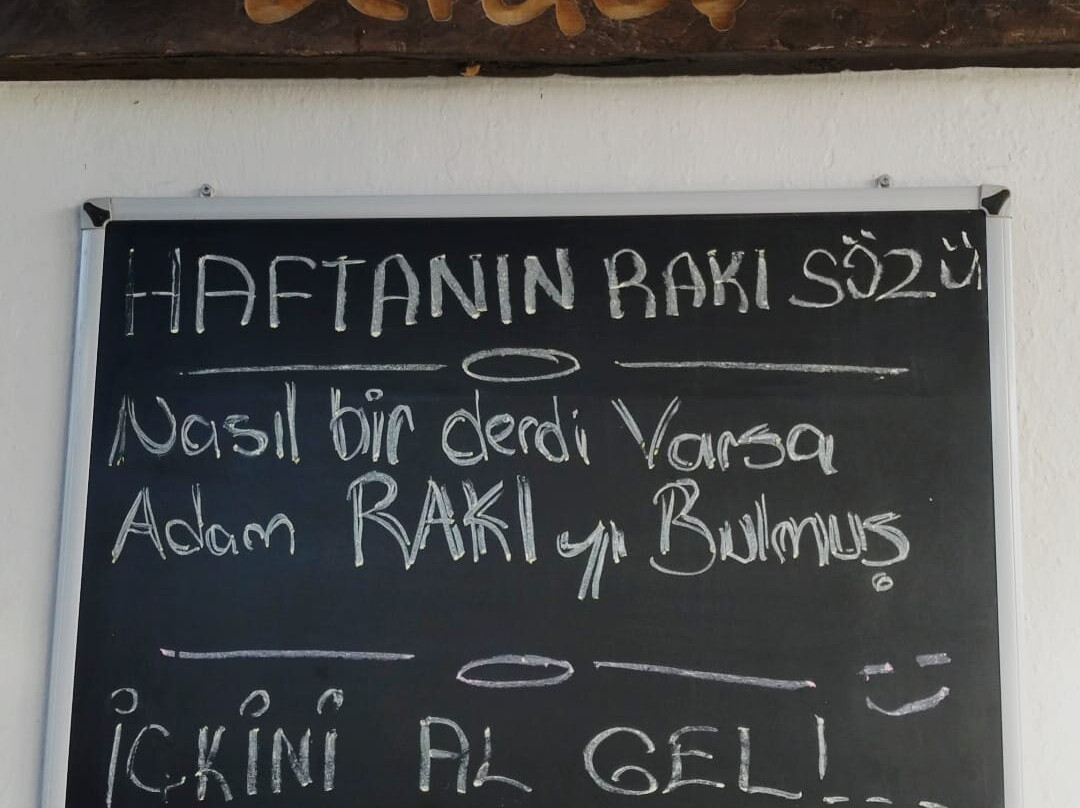 HAFTANIN RAKI SÖZÜ
Nasıl bir derdi Varsa
Adam RAKI yı Bulmuş
İÇKİNİ AL GEL!